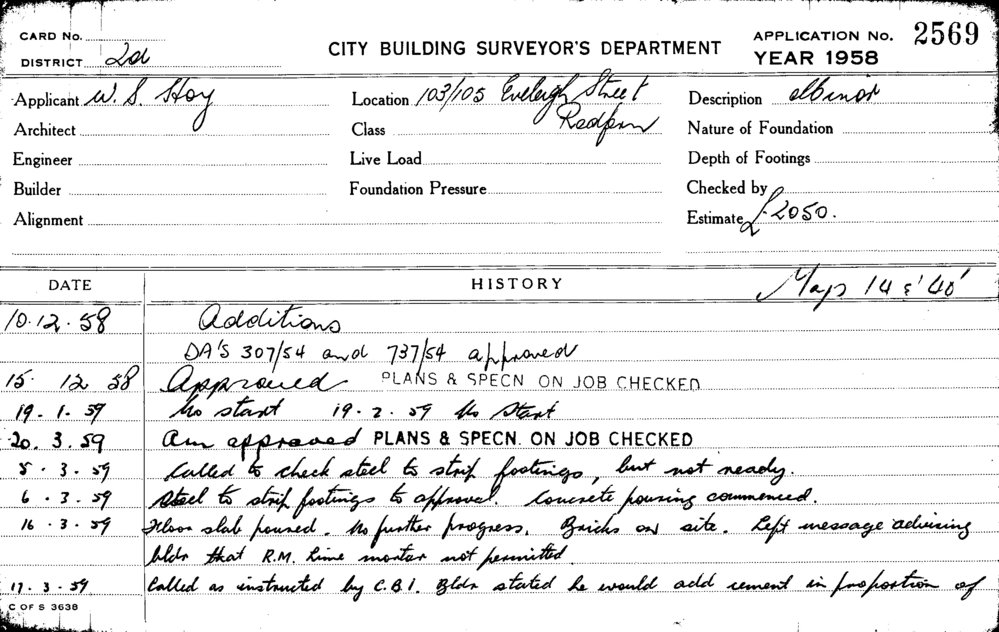 CARD No.
DISTRICT 2d
CITY BUILDING SURVEYOR'S DEPARTMENT
APPLICATION No. 2569
YEAR 1958
Applicant W. S. Hoy
Location 103/105 Eveleigh Street
Redfern
Description
Architect
Class
Nature of Foundation
Engineer
Live Load
Depth of Footings
Builder
Foundation Pressure
Checked by
Alignment
Estimate £2050.
DATE
HISTORY
Maps 14 & 40
10.12.58 Additions
DA'S 307/54 and 737/54 approved
15. 12 58 Approved PLANS & SPECN ON JOB CHECKED
19. 1. 59 No start 19. 2. 59 No Start
20. 3. 59 Am approved PLANS & SPECN. ON JOB CHECKED
5. 3. 59 Called to check steel to strip footings, but not ready.
6. 3. 59 Steel to strip footings to approval. Concrete pouring commenced.
16. 3. 59 Floor slab poured. No further progress. Bricks on site. Left message advising
bldr that R.M. Lime mortar not permitted
17. 3. 59 Called as instructed by C.B.I. Bldr stated he would add cement in proportion of
C OF S 3638